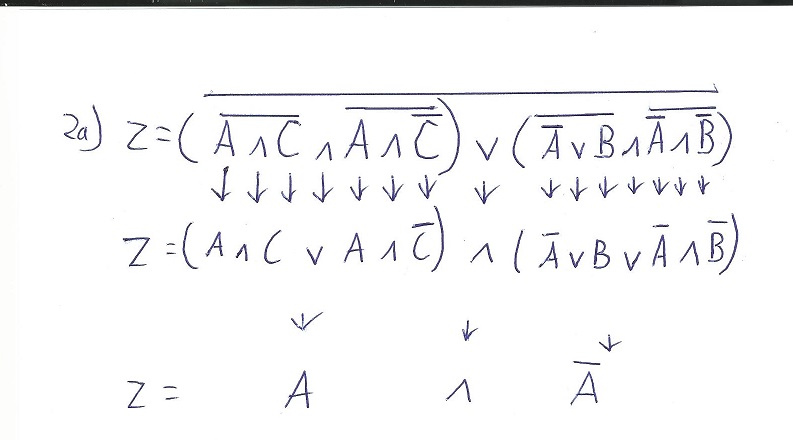 2a) Z=( A̅ ̅∧̅ ̅C̅ ∧ A̅ ̅∧̅ ̅C̿ ) ∨ ( A̿ ̅∨̅ ̅B̅ ∧ A̿ ̅∧̅ ̅B̿ )
↓ ↓ ↓ ↓ ↓ ↓ ↓ ↓ ↓ ↓ ↓ ↓ ↓ ↓ ↓
Z =( A ∧ C ∨ A ∧ C̅ ) ∧ ( A̅ ∨ B ∨ A̅ ∧ B̅ )
↓ ↓ ↓
Z = A ∧ A̅